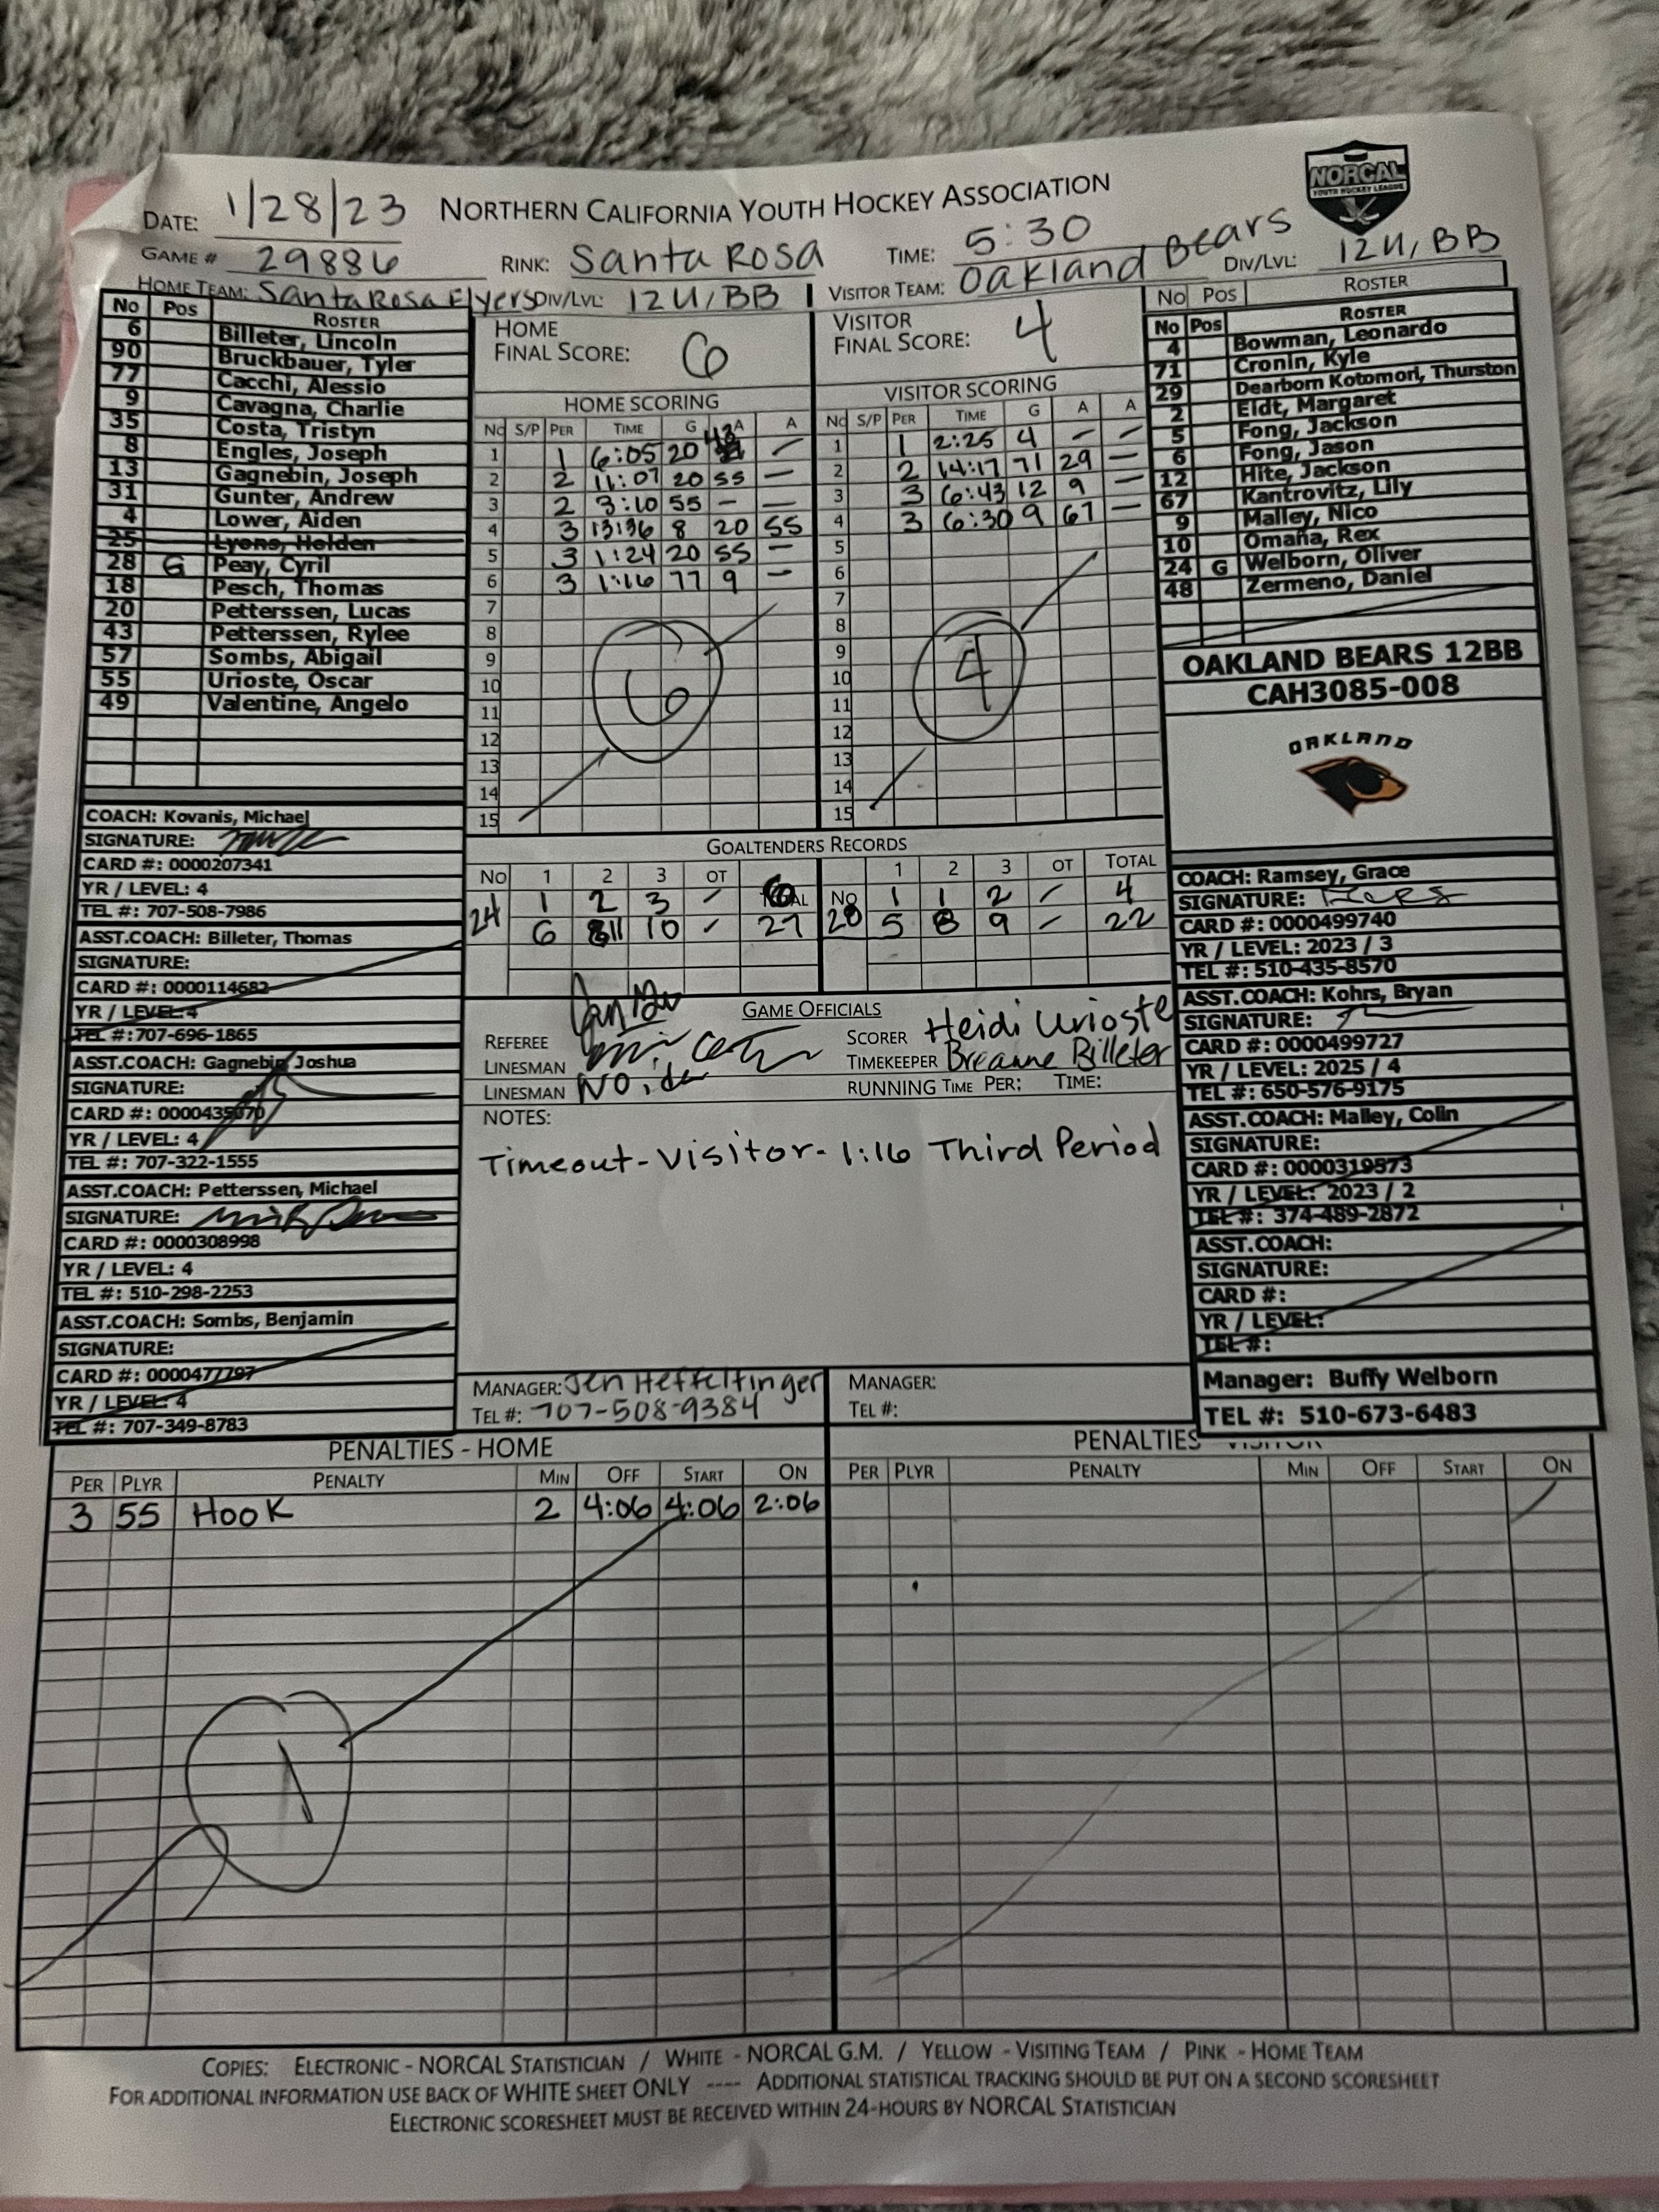 NORCAL
YOUTH HOCKEY LEAGUE
DATE: 1/28/23 NORTHERN CALIFORNIA YOUTH HOCKEY ASSOCIATION
GAME # 29886 RINK: Santa Rosa TIME: 5:30 DIV/LVL: 12U, BB
HOME TEAM: Santa Rosa Flyers DIV/LVL: 12U, BB VISITOR TEAM: Oakland Bears
No Pos ROSTER
6 Billeter, Lincoln
90 Bruckbauer, Tyler
77 Cacchi, Alessio
9 Cavagna, Charlie
35 Costa, Tristyn
8 Engles, Joseph
13 Gagnebin, Joseph
31 Gunter, Andrew
4 Lower, Aiden
25 Lyons, Holden
28 G Peay, Cyril
18 Pesch, Thomas
20 Petterssen, Lucas
43 Petterssen, Rylee
57 Sombs, Abigail
55 Urioste, Oscar
49 Valentine, Angelo
COACH: Kovanis, Michael
SIGNATURE:
CARD #: 0000207341
YR / LEVEL: 4
TEL #: 707-508-7986
ASST.COACH: Billeter, Thomas
SIGNATURE:
CARD #: 0000114682
YR / LEVEL: 4
TEL #: 707-696-1865
ASST.COACH: Gagnebin, Joshua
SIGNATURE:
CARD #: 0000435070
YR / LEVEL: 4
TEL #: 707-322-1555
ASST.COACH: Petterssen, Michael
SIGNATURE:
CARD #: 0000308998
YR / LEVEL: 4
TEL #: 510-298-2253
ASST.COACH: Sombs, Benjamin
SIGNATURE:
CARD #: 0000477797
YR / LEVEL: 4
TEL #: 707-349-8783
HOME
FINAL SCORE: 6
HOME SCORING
No S/P PER TIME G A A
1 1 6:05 20 43 —
2 2 11:07 20 55 —
3 2 3:10 55 - —
4 3 13:36 8 20 55
5 3 1:24 20 55 —
6 3 1:16 77 9 —
7
8
9
10
11
12
13
14
15
6
VISITOR
FINAL SCORE: 4
VISITOR SCORING
No S/P PER TIME G A A
1 1 2:25 4 — —
2 2 14:17 71 29 —
3 3 6:43 12 9 —
4 3 6:30 9 67 —
5
6
7
8
9
10
11
12
13
14
15
4
GOALTENDERS RECORDS
No 1 2 3 OT TOTAL
24 1 2 3 - 6
6 11 10 - 27
No 1 2 3 OT TOTAL
28 1 1 2 - 4
5 8 9 - 22
GAME OFFICIALS
REFEREE
LINESMAN
LINESMAN
SCORER Heidi Urioste
TIMEKEEPER Breanne Billeter
RUNNING TIME PER: TIME:
NOTES:
Timeout-Visitor-1:16 Third Period
MANAGER: Jen Heffelfinger
TEL #: 707-508-9384
MANAGER:
TEL #:
No Pos ROSTER
No Pos ROSTER
4 Bowman, Leonardo
71 Cronin, Kyle
29 Dearborn Kotomori, Thurston
2 Eldt, Margaret
5 Fong, Jackson
6 Fong, Jason
12 Hite, Jackson
67 Kantrovitz, Lily
9 Malley, Nico
10 Omaña, Rex
24 G Welborn, Oliver
48 Zermeno, Daniel
OAKLAND BEARS 12BB
CAH3085-008
OAKLAND
COACH: Ramsey, Grace
SIGNATURE:
CARD #: 0000499740
YR / LEVEL: 2023 / 3
TEL #: 510-435-8570
ASST.COACH: Kohrs, Bryan
SIGNATURE:
CARD #: 0000499727
YR / LEVEL: 2025 / 4
TEL #: 650-576-9175
ASST.COACH: Malley, Colin
SIGNATURE:
CARD #: 0000319573
YR / LEVEL: 2023 / 2
TEL #: 374-489-2872
ASST.COACH:
SIGNATURE:
CARD #:
YR / LEVEL:
TEL #:
Manager: Buffy Welborn
TEL #: 510-673-6483
PENALTIES - HOME
PER PLYR PENALTY MIN OFF START ON
3 55 Hook 2 4:06 4:06 2:06
1
PENALTIES - VISITOR
PER PLYR PENALTY MIN OFF START ON
COPIES: ELECTRONIC - NORCAL STATISTICIAN / WHITE - NORCAL G.M. / YELLOW - VISITING TEAM / PINK - HOME TEAM
FOR ADDITIONAL INFORMATION USE BACK OF WHITE SHEET ONLY ---- ADDITIONAL STATISTICAL TRACKING SHOULD BE PUT ON A SECOND SCORESHEET
ELECTRONIC SCORESHEET MUST BE RECEIVED WITHIN 24-HOURS BY NORCAL STATISTICIAN